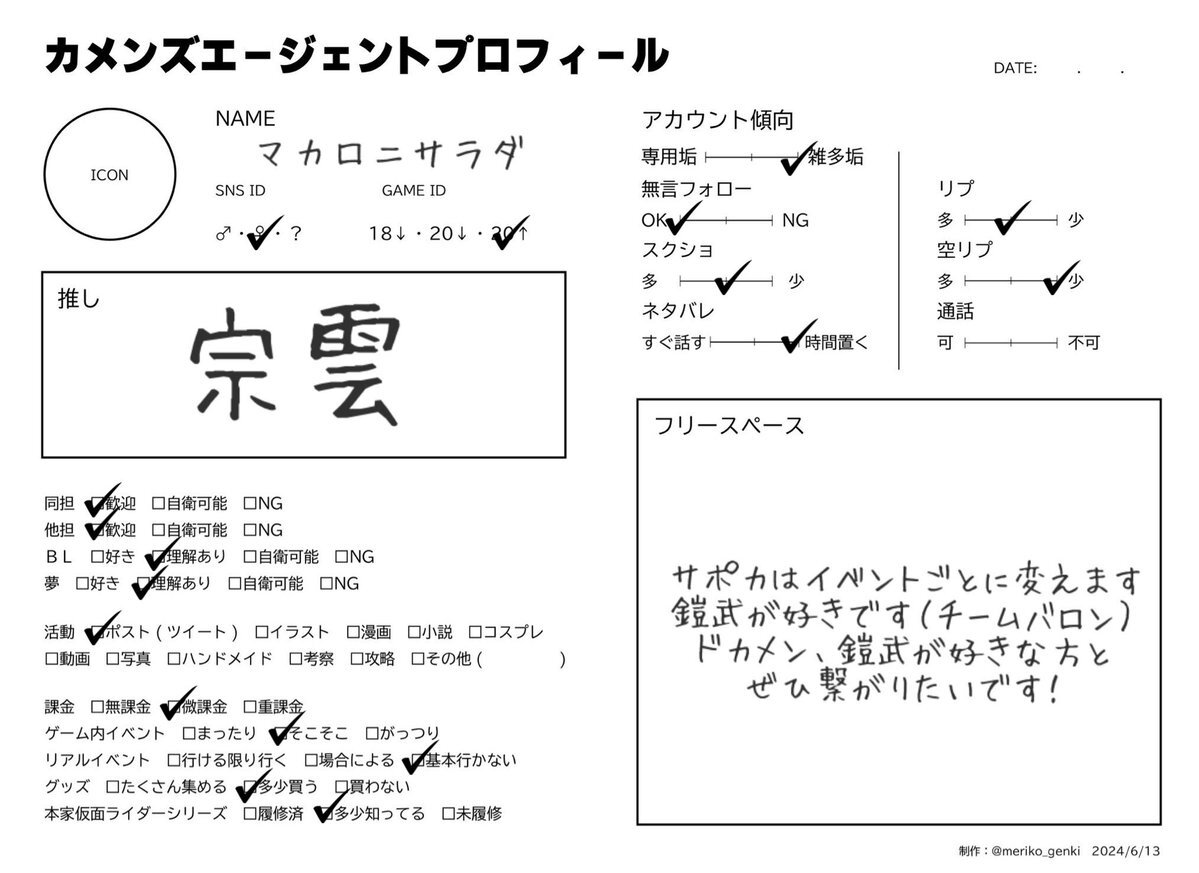 カメンズエージェントプロフィール
DATE: . .
ICON
NAME
マカロニサラダ
SNS ID GAME ID
♂・♀・？ 18↓・20↓・20↑
推し
宗雲
同担 □歓迎 □自衛可能 □NG
他担 □歓迎 □自衛可能 □NG
ＢＬ □好き □理解あり □自衛可能 □NG
夢 □好き □理解あり □自衛可能 □NG
活動 □ポスト(ツイート) □イラスト □漫画 □小説 □コスプレ
□動画 □写真 □ハンドメイド □考察 □攻略 □その他( )
課金 □無課金 □微課金 □重課金
ゲーム内イベント □まったり □そこそこ □がっつり
リアルイベント □行ける限り行く □場合による □基本行かない
グッズ □たくさん集める □多少買う □買わない
本家仮面ライダーシリーズ □履修済 □多少知ってる □未履修
アカウント傾向
専用垢 雑多垢
無言フォロー
OK NG
スクショ
多 少
ネタバレ
すぐ話す 時間置く
リプ
多 少
空リプ
多 少
通話
可 不可
フリースペース
サポカはイベントごとに変えます
鎧武が好きです(チームバロン)
ドカメン、鎧武が好きな方と
ぜひ繋がりたいです!
制作：@meriko_genki 2024/6/13